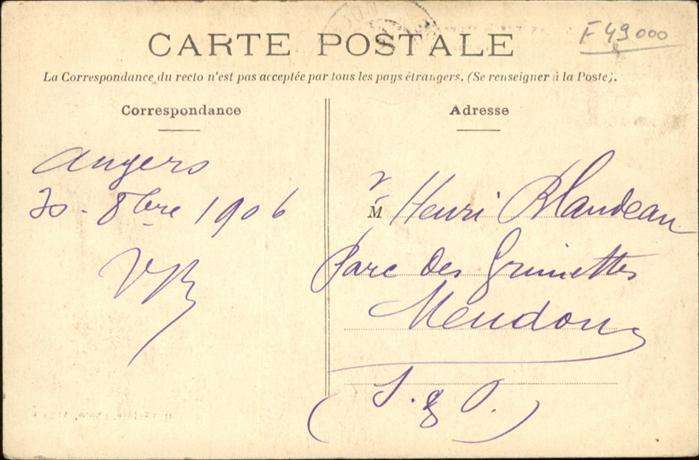 F 49000
CARTE POSTALE
La Correspondance du recto n'est pas acceptée par tous les pays étrangers. (Se renseigner à la Poste).
Correspondance
Angers
30 - 8bre 1906
Adresse
Mr Henri Blandeau
Parc des Grimettes
Meudon
(S. & O.)